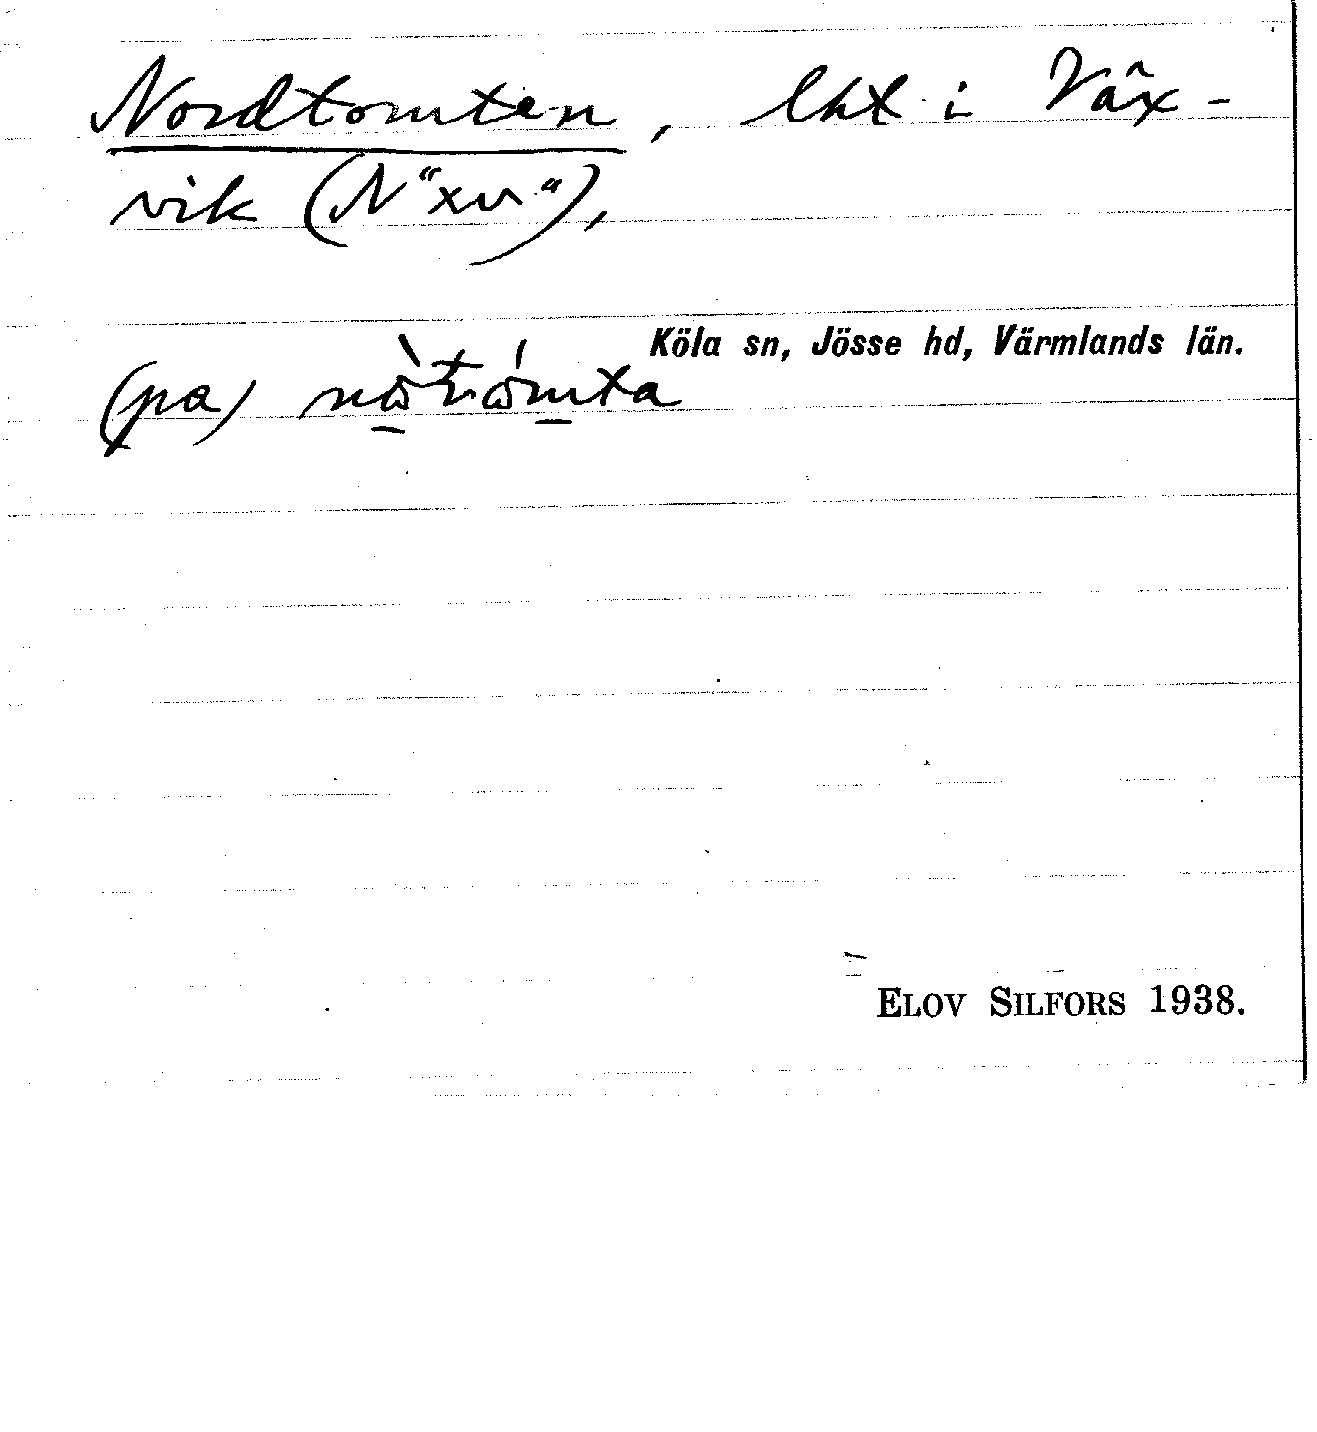 Nordtomten, lht i Väx-
vik (N "xv"),
Köla sn, Jösse hd, Värmlands län.
(pa)
ELOV SILFORS 1938.